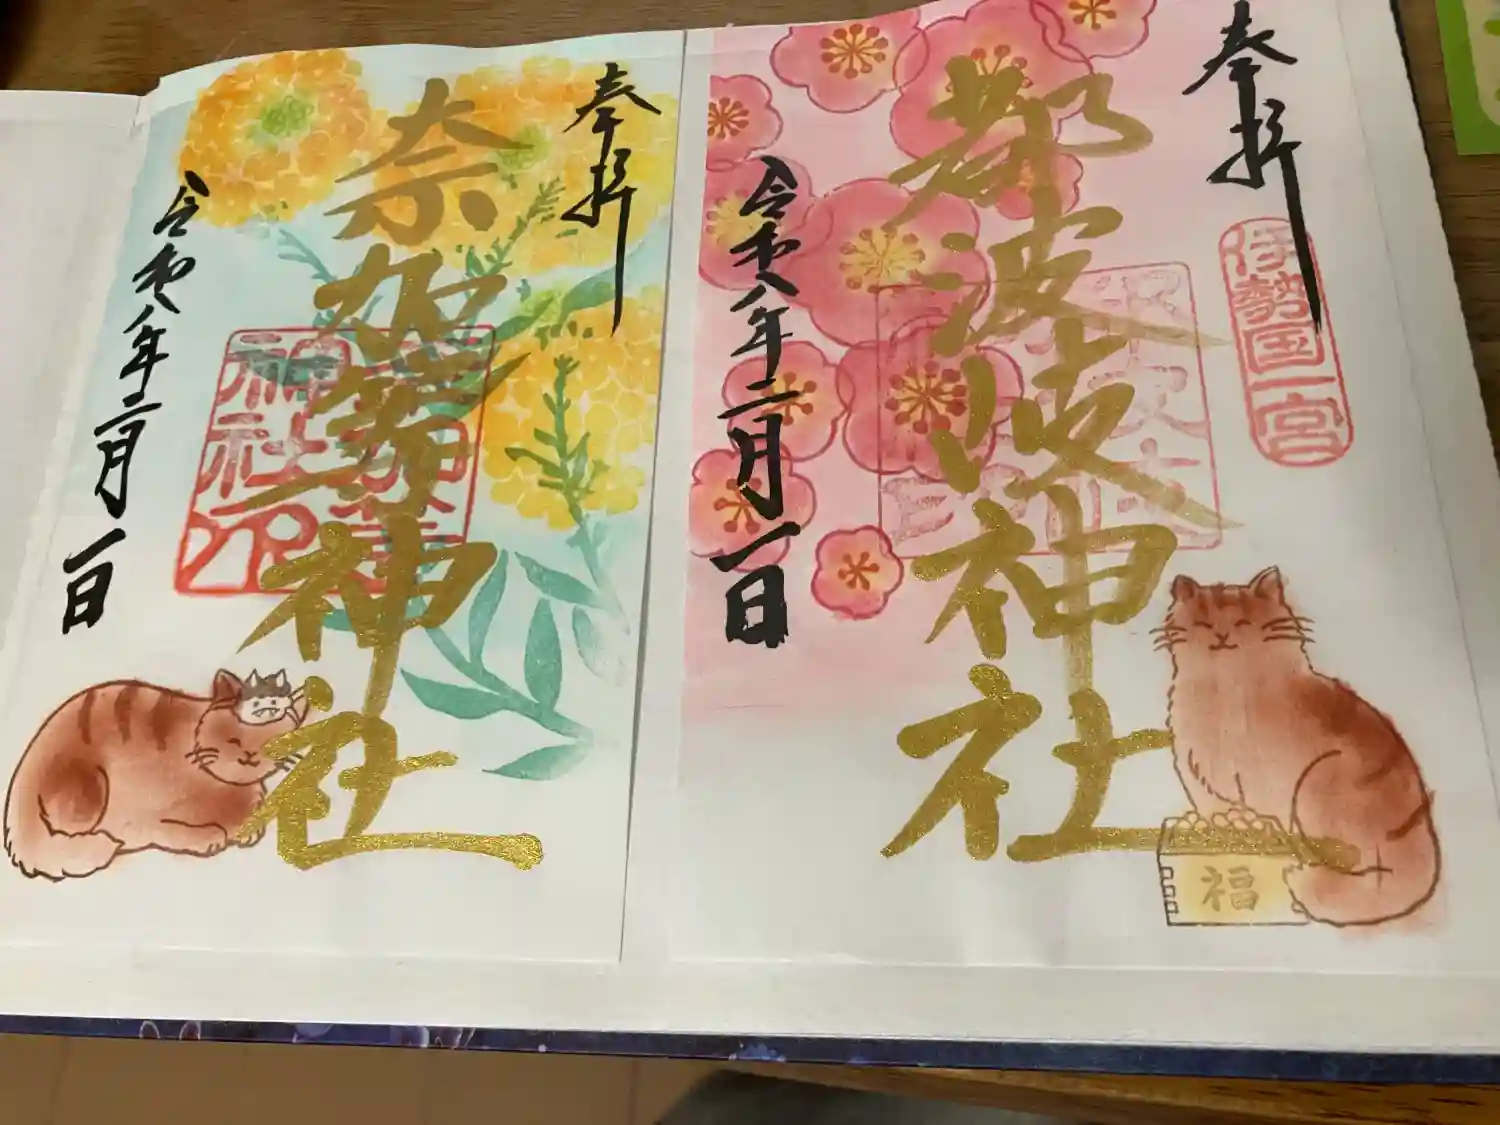 奉拝
伊勢国一宮
都波岐神社
令和八年二月一日
福
奉拝
奈加等神社
神社印
令和八年二月一日